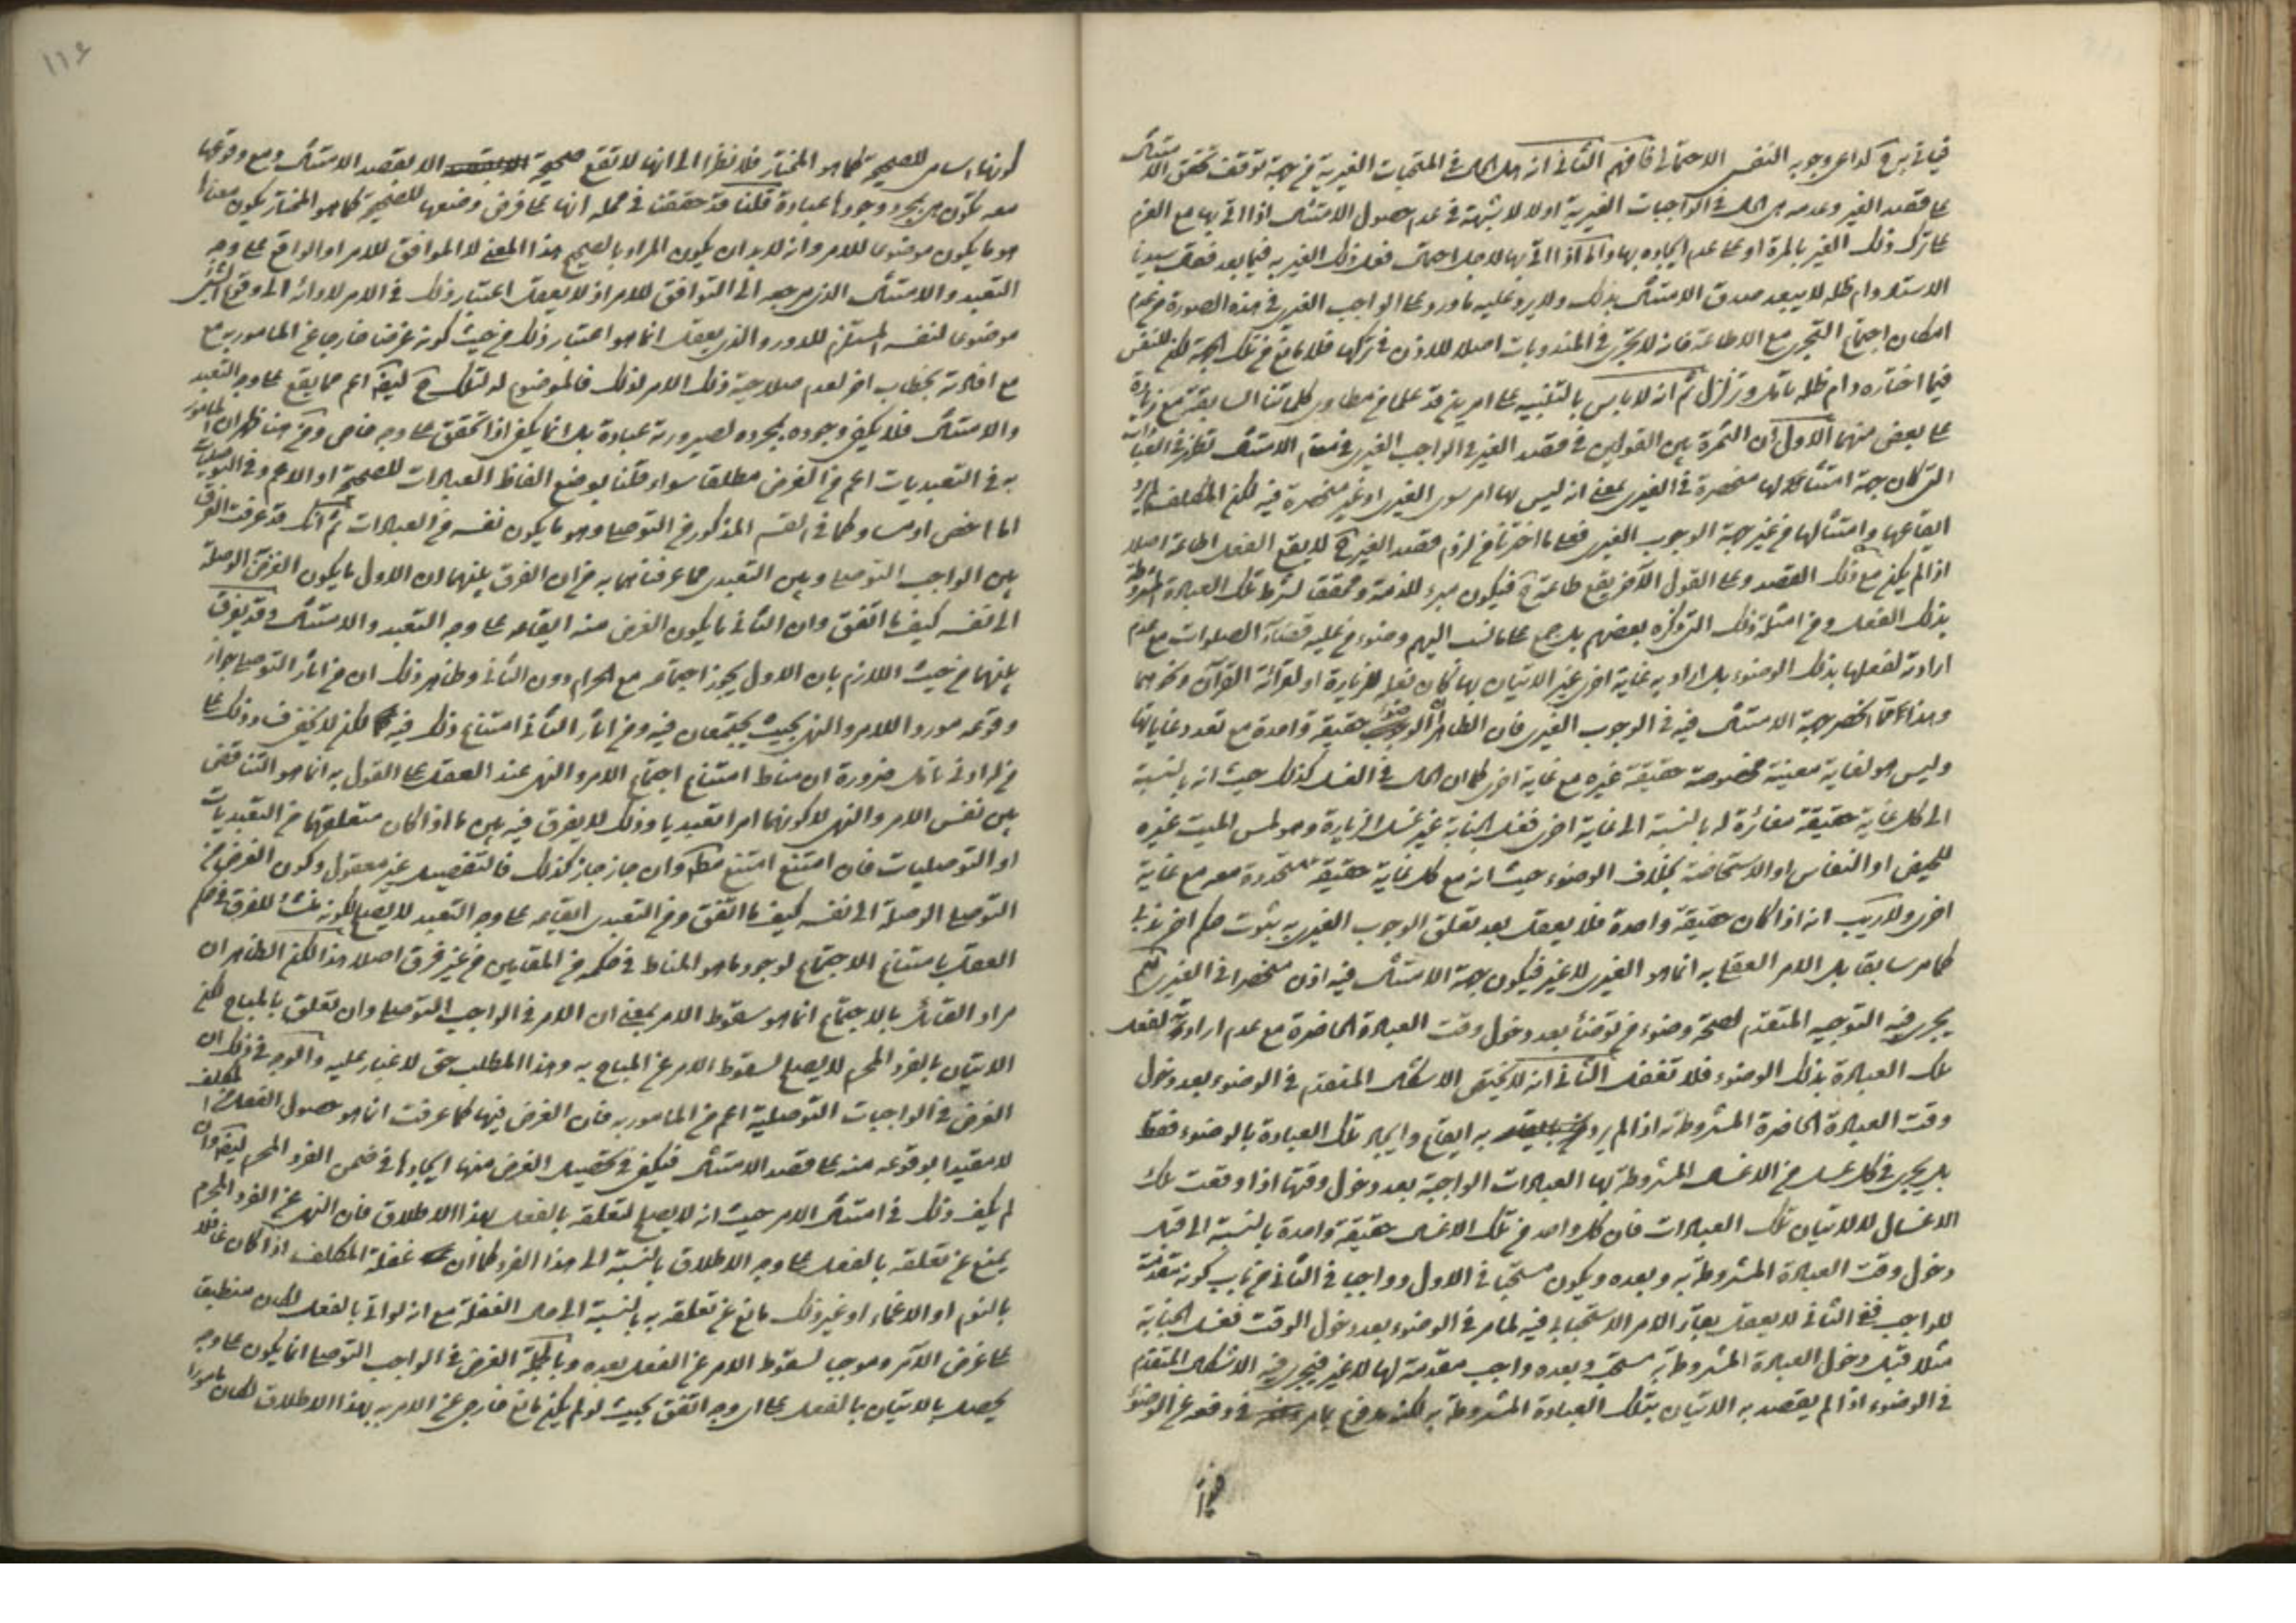 فيأتي به ح كداعي وجوبه النفسي الاحتمالي فافهم الثاني انه هل الحال في المستحبات الغيرية من جهة توقف تحقق الامتثال
على قصد الغير وعدمه هي الحال في الواجبات الغيرية اولا لا شبهة في عدم حصول الامتثال اذا اتى بها مع العزم
على ترك ذلك الغير بالمرة او على عدم ايجاده بها واما اذا اتى بها لاجل احتمال فعل ذلك الغير به فيما بعد فقال سيدنا
الاستاد دام ظله لا يبعد صدق الامتثال بذلك ولا يرد عليه ما ورد على الواجب الغيري في هذه الصورة من عدم
امكان اجتماع التجري مع الاطاعة فانه لا تجري في المندوبات اصلا للاذن في تركها فلا مانع من تلك الجهة لكن للنفس
فيما اختاره دام ظله تامل وتزلزل ثم انه لا باس بالتنبيه على امرين قد علما من مطاوي كلماتنا السابقة مع زيادة
على بعض منهما الاول ان الثمرة بين القولين في قصد الغير في الواجب الغيري في مقام الامتثال تظهر في العبادات
التي كان جهة امتثالها منحصرة في الغيري بمعنى انه ليس لها امر سوى الغيري او غير منحصرة فيه لكن المكلف لا يريد
ايقاعها وامتثالها من غير جهة الوجوب الغيري فعلى ما اخترنا من لزوم قصد الغير ح لا يقع الفعل اطاعة اصلا
اذا لم يكن مع ذلك القصد وعلى القول الآخر يقع طاعة ح فيكون مبرء للذمة ومحققا لشرط تلك العبادة المشروطة
بذلك الفعل ومن امثلة ذلك التي ذكره بعضهم بل جمع على ما نسب اليهم وضوء من عليه قضاء الصلوات مع عدم
ارادته لفعلها بذلك الوضوء بل اراد به غاية اخرى غير الاتيان بها كان فعله للزيارة او لقرائة القرآن ونحوهما
وهذا مما انحصر جهة الامتثال فيه في الوجوب الغيري فان الظاهر ان الوضوء حقيقة واحدة مع تعدد غاياتها
وليس هو لغاية معينة مخصوصة حقيقة غيره مع غاية اخرى كما ان الحال في الغسل كذلك حيث انه بالنسبة
الى كل غاية حقيقة مغائرة له بالنسبة الى غاية اخرى فغسل الجنابة غير غسل الزيارة وهو لمس الميت غيره
للحيض او النفاس او الاستحاضة بخلاف الوضوء حيث انه مع كل غاية حقيقة متحدة معه مع غاية
اخرى ولا ريب انه اذا كان حقيقة واحدة فلا يعقل بعد تعلق الوجوب الغيري به بثبوت حكم اخر ندبي
كما مر سابقا بل الامر الفعلي به انما هو الغيري لا غير فيكون جهة الامتثال فيه اذن منحصرا في الغيري نعم
يجري فيه التوجيه المتقدم لصحة وضوء من توضأ بعد دخول وقت العبادة الحاضرة مع عدم ارادته لفعل
تلك العبادة بذلك الوضوء فلا تغفل الثاني انه لا يختص الاشكال المتقدم في الوضوء بعد دخول
وقت العبادة الحاضرة المشروطة به اذا لم يرد به ايقاع وايجاد تلك العبادة بالوضوء فقط
بل يجري في كل غسل من الاغسال المشروطة بها العبادات الواجبة بعد دخول وقتها اذا وقعت تلك
الاغسال لا للاتيان تلك العبادات فان كل واحد من تلك الاغسال حقيقة واحدة بالنسبة الى قبل
دخول وقت العبادة المشروطة به وبعده ويكون مستحبا في الاول وواجبا في الثاني من باب كونه مقدمة
للواجب ففي الثاني لا يعقل بقاء الامر الاستحبابي فيه لما مر في الوضوء بعد دخول الوقت فغسل الجنابة
مثلا قبل دخول العبادة المشروطة به مستحب وبعده واجب مقدمة لها لا غير فيجري فيه الاشكال المتقدم
في الوضوء اذا لم يقصد به الاتيان بتلك العبادة المشروطة به لكنه مدفوع بما مر في دفعه عن الوضوء
١١٦
كونها اسامي للصحيح كما هو المختار فلا نظرا الى انها لا تقع صحيحة الا بقصد الامتثال ومع وقوعها
معه تكون هي بمجرد وجودها عبادة قلنا قد حققنا في محله انها على فرض وضعها للصحيح كما هو المختار يكون معناها
هو ما يكون موضوعا للامر وانه لا بد ان يكون المراد بالصحيح هذا المعنى لا الموافق للامر او الواقع على وجه
التعبد والامتثال الذي مرجعه الى التوافق للامر اذ لا يعقل اعتبار ذلك في الامر لادائه الى وقوع الشيء
موضوعا لنفسه المستلزم للدور والذي يعقل انما هو اعتبار ذلك من حيث كونه غرضا خارجا عن المامور به مع
مع افادته بخطاب اخر لعدم صلاحية ذلك الامر لذلك فالموضوع له لتلك ح ايضا اعم مما يقع على وجه التعبد
والامتثال فلا يكفي وجوده بمجرده لصيرورته عبادة بل انما يكفي اذا تحقق على وجه خاص ومن هنا ظهر ان المامور
به في التعبديات اعم من الغرض مطلقا سواء قلنا بوضع الفاظ العبادات للصحيح او الاعم وفي التوصليات
اما اخص او مساو كما في القسم المذكور من التوصلي وهو ما يكون نفسه من العبادات ثم انك قد عرفت الفرق
بين الواجب التوصلي وبين التعبدي مما عرفناهما به من ان الفرق بينهما ان الاول ما يكون الغرض الوصلة
الى نفسه كيف ما اتفق وان الثاني ما يكون الغرض منه ايقاعه على وجه التعبد والامتثال وقد يفرق
بينهما من حيث اللازم بان الاول يجوز اجتماعه مع الحرام دون الثاني وظاهر ذلك ان من آثار التوصلي جواز
وقوعه موردا للامر والنهي بحيث يجتمعان فيه ومن آثار الثاني امتناع ذلك فيه لكن لا يخفى فساد ذلك على
من له ادنى تامل ضرورة ان مناط امتناع اجتماع الامر والنهي عند العقل على القول به انما هو التناقض
بين نفس الامر والنهي لا كونهما امرا تعبديا وذلك لا يفرق فيه بين ما اذا كان متعلقهما من التعبديات
او التوصليات فان امتنع امتنع مطلقا وان جاز جاز كذلك فالتفصيل غير معقول وكون الغرض من
التوصلي الوصلة الى نفسه كيف ما اتفق ومن التعبدي ايقاعه على وجه التعبد لا يصلح لكونه منشأ للفرق في حكم
العقل بامتناع الاجتماع لوجود ما هو المناط في حكمه في المقامين من غير فرق اصلا هذا لكن الظاهر ان
مراد القائل بالاجتماع انما هو سقوط الامر بمعنى ان الامر في الواجب التوصلي وان تعلق بالمباح لكن
الاتيان بالفرد المحرم لا يصلح لسقوط الامر عن المباح به وهذا المطلب حق لا غبار عليه والوجه في ذلك ان
الغرض في الواجبات التوصلية اعم من المامور به فان الغرض فيها كما عرفت انما هو حصول الفعل من المكلف
لا مقيدا بوقوعه منه على قصد الامتثال فيكفي في تحصيل الغرض منها ايجادها في ضمن الفرد المحرم ايضا وان
لم يكف ذلك في امتثال الامر حيث انه لا يصلح لتعلقه بالفعل بهذا الاطلاق فان النهي عن الفرد المحرم
يمنع عن تعلقه بالفعل على وجه الاطلاق بالنسبة الى هذا الفرد كما ان غفلة المكلف اذا كان غافلا
بالنوم او الاغماء او غير ذلك مانع عن تعلقه به بالنسبة الى حال الغفلة مع انه لو اتى بالفعل لكان منطبقا
على غرض الآمر وموجبا لسقوط الامر عن الفعل بعده وبالجملة الغرض في الواجب التوصلي انما يكون على وجه
يحصل بالاتيان بالفعل على اي وجه اتفق بحيث لو لم يكن مانع خارجي عن الامر به بهذا الاطلاق لكان مامورا